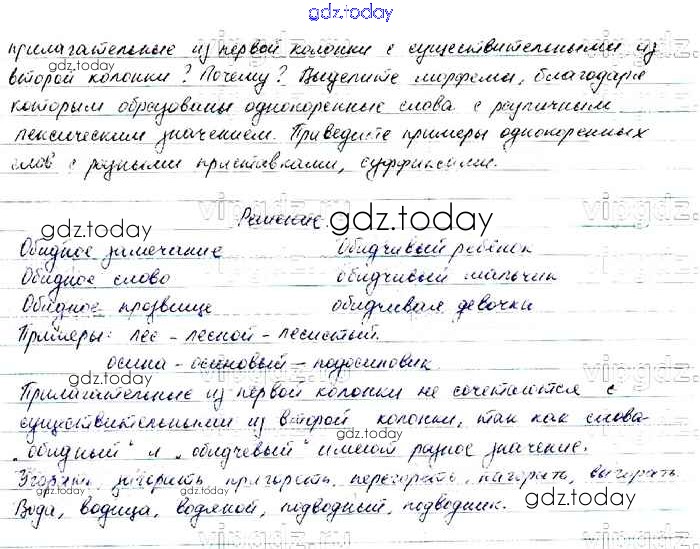 gdz.today
прилагательные из первой колонки с существительными из
второй колонки? Почему? Выделите морфемы, благодаря
которым образованы однокоренные слова с различным
лексическим значением. Приведите примеры однокоренных
слов с разными приставками, суффиксами.
Решение.
gdz.today
Обидное замечание обидчивый ребёнок
Обидное слово обидчивый мальчик
Обидное прозвище обидчивая девочка
Примеры: лес - лесной - лесистый.
осина - осиновый - подосиновик.
gdz.today
Прилагательные из первой колонки не сочетаются с
существительными из второй колонки, так как слова
„обидный" и „обидчевый" имеют разное значение.
gdz.today
Угореть, загореть, пригореть, перегореть, нагореть, выгореть
gdz.today
Вода, водица, водяной, подводный, подводник.
gdz.today